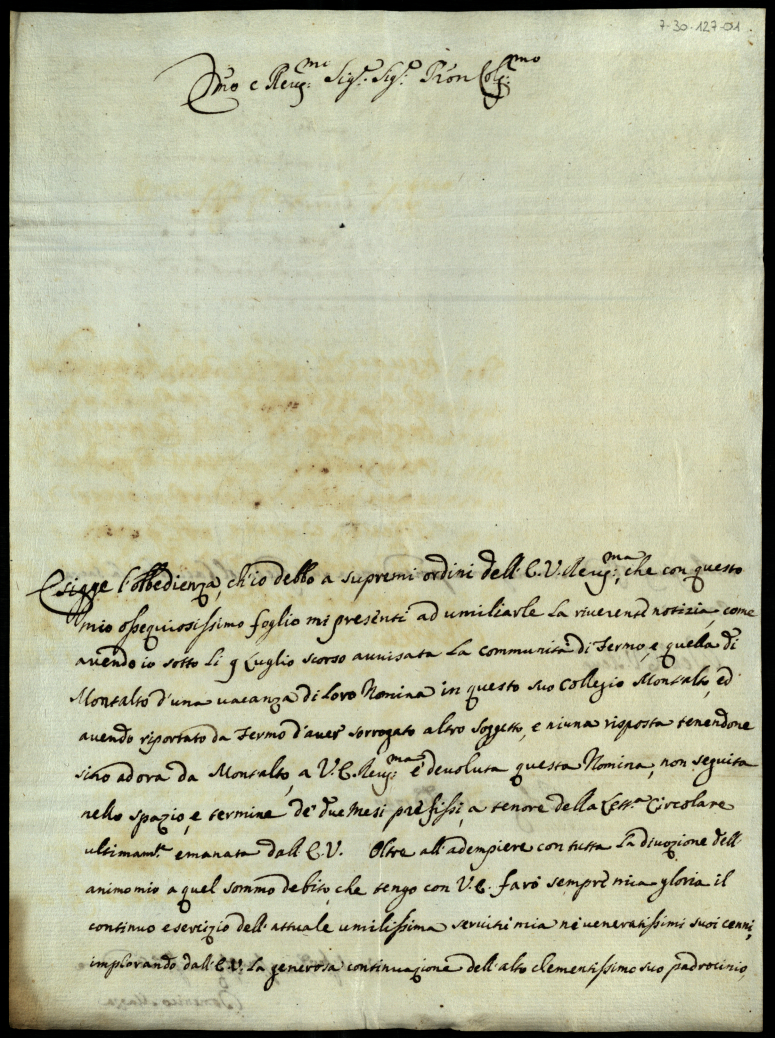 7-30-127-01
Emo e Reu.mo Sig.r Sig.r Pron Col.mo
Esigge l'obbedienza, ch'io debbo a supremi ordini dell'E.V. Reu.ma, che con questo
mio ossequiosissimo foglio mi presenti ad umiliarle la riverente notizia, come
avendo io sotto li 9 Luglio scorso avvisata la communità di Fermo, e quella di
Montalto d'una vacanza di Loro Nomina in questo suo Collegio Montalto, ed
avendo riportato da Fermo d'aver sorrogato altro soggetto, e niuna risposta tenendone
sino ad ora da Montalto, a V.E. Reu.ma è devoluta questa Nomina, non seguita
nello spazio, e termine de' due Mesi prefissi, a tenore della Lett.a Circolare
ultimam.te emanata dall'E.V. Oltre all'adempiere con tutta la divozione dell'
animo mio a quel sommo debito, che tengo con V.E. farò sempre mia gloria il
continuo esercizio dell'attuale umilissima servitù mia ne veneratissimi suoi cenni,
implorando dall'E.V. la generosa continuazione dell'alto clementissimo suo padrocinio,